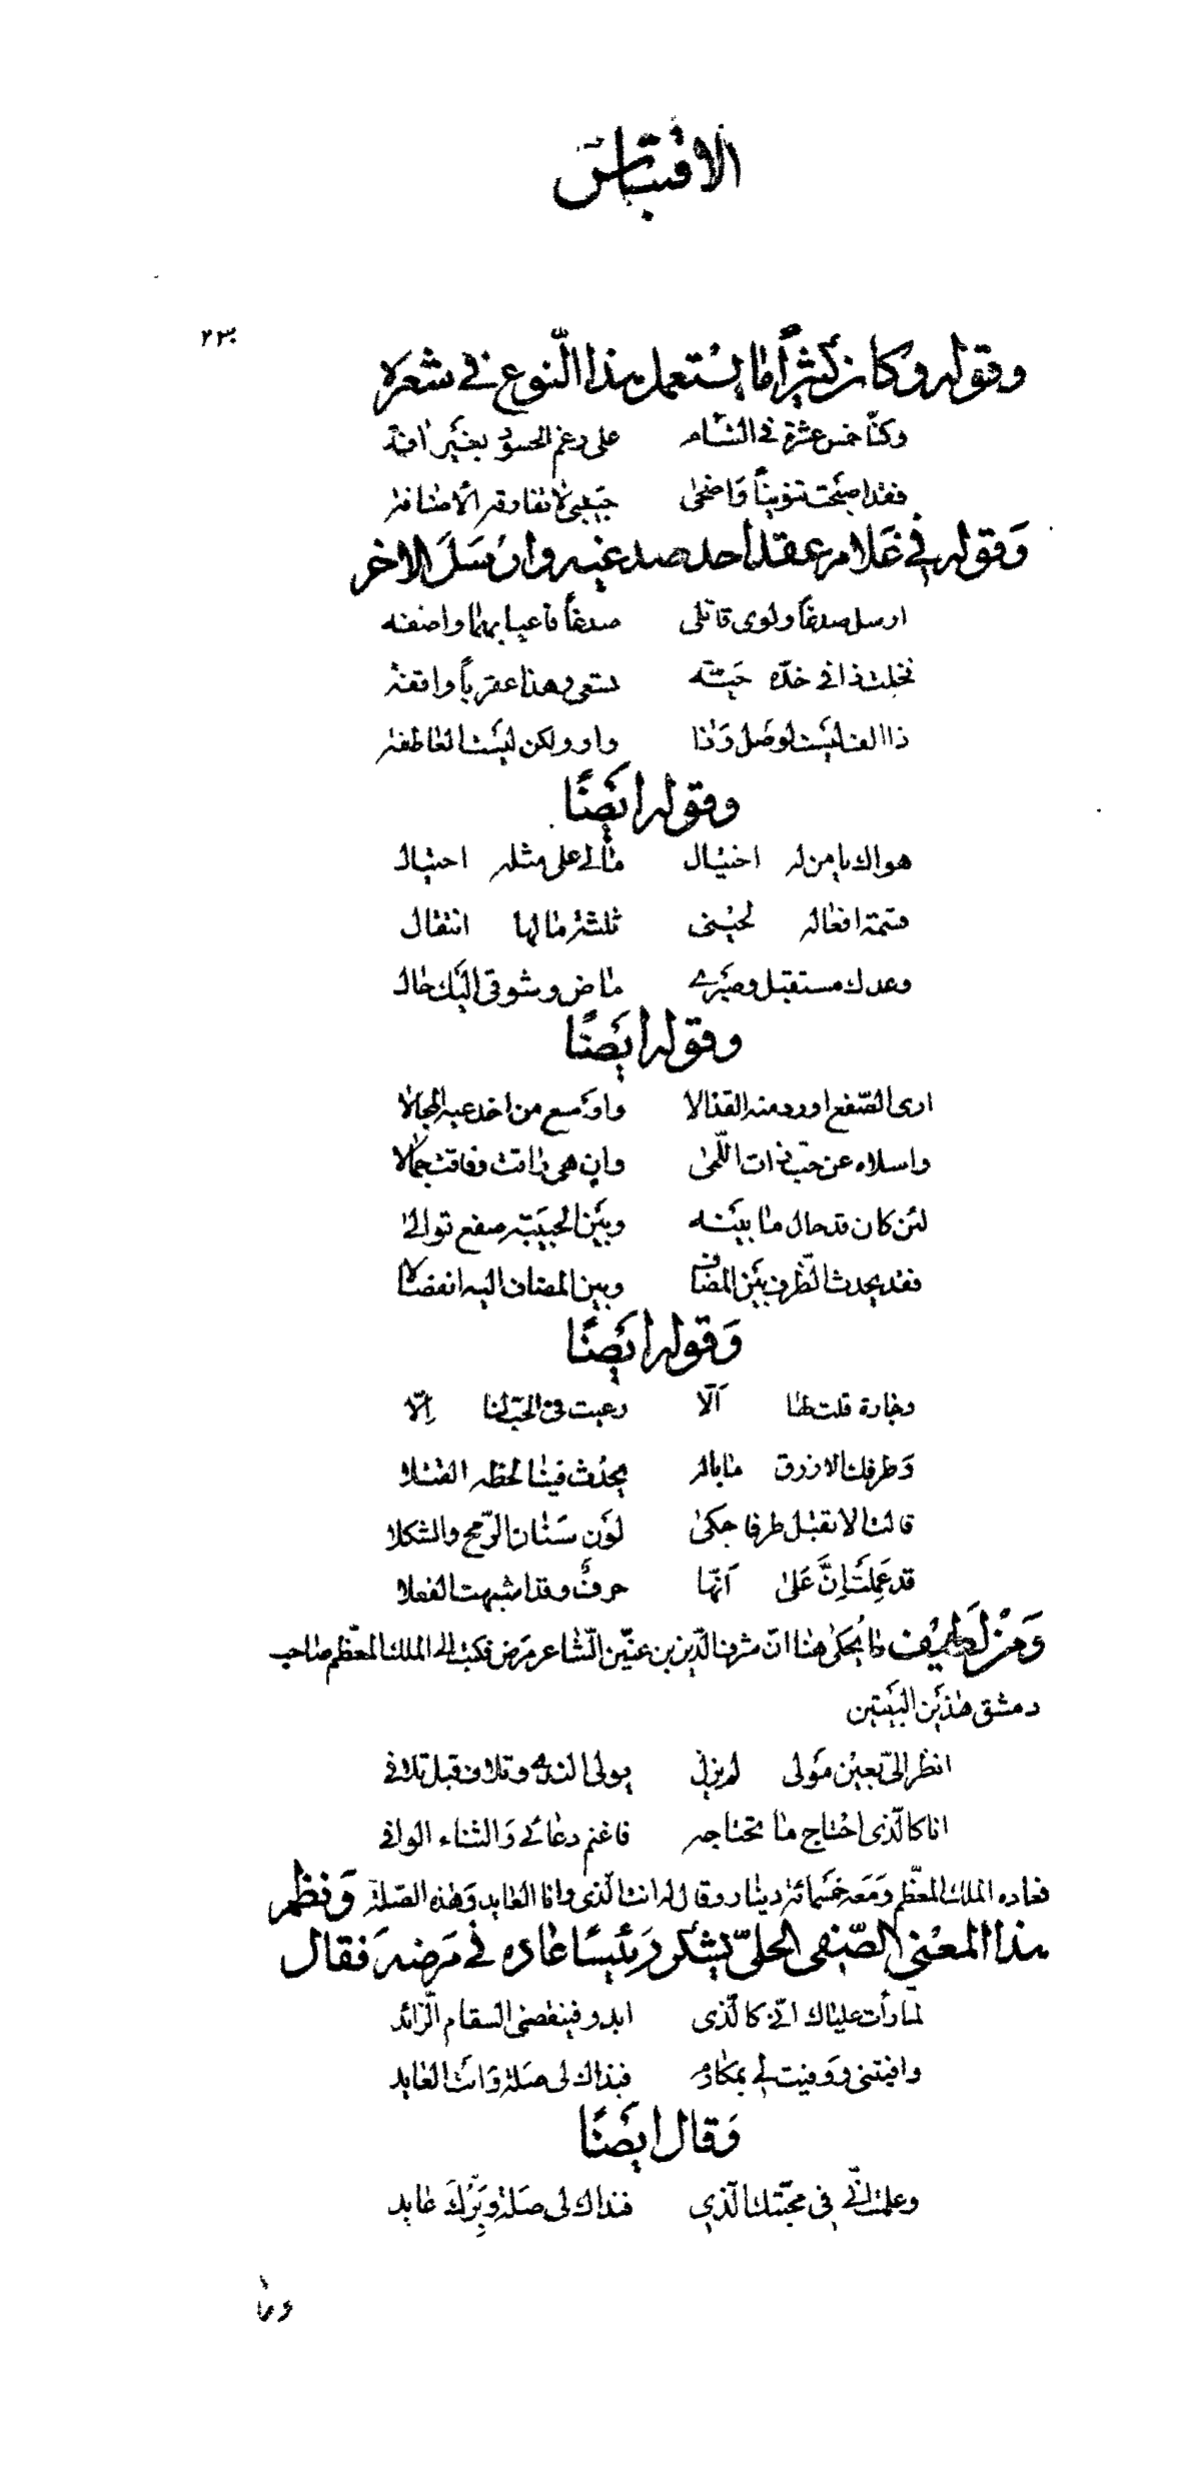 الاقتباس
٢٣٠
وقوله وكان كثيراً ما يستعمل هذا النّوع في شعره
وكنّا خمس عشرة في التئام على رغم الحسود بغير آفة
فقد اصبحت تنويناً وَاضحى حبيبى لا تفارقه الاضافة
وَقوله في غلام عقد احد صدغيه وارسَلَ الاخر
ارسل صدغاً ولوى قاتلى صدغاً فاعيا بهما واصفه
فخلت ذا فى خدّه حَيّة تسعى وهذا عقرباً واقفة
ذا الف ليست لوصل وَذا واو ولكن ليست العاطفة
وقوله ايضًا
هواك يا من له اختيال مالى على مثله احتيال
قسمة افعاله لحينى ثلثة مالها انتقال
وعدك مستقبل وصبرى ماض وشوقى اليك حال
وقوله ايضًا
ارى الصّفع اورد منه القذالا واوسع من اخدعيه المجالا
واسلاه عن حبّ ذات اللّمى وان هى زانت وفاقت جمالا
لئن كان قد حال ما بينه وبين الحبيبة صفع توالى
فقد يحدث الظّرف بين المضاف وبين المضاف اليه انفصالا
وَقوله ايضًا
وجارة قلت لها اَلّا رعيت فى الحبّ لنا اِلّا
وَطرفك الازرق ما باله يحدث فينا لحظه القتلا
قالت الا تقبل طرفا حكى لون سنان الرّمح والشكلا
قد عَمِلَتْ اِنَّ عَلى اَنّها حرف وقد اشبهت الفعلا
وَمن لطيف ما يحكى هنا انّ شرف الدّين بن عنّين الشّاعر مرض فكتب الى الملك المعظّم صاحب
دمشق هذين البيتين
انظر الىّ بعين مَولى لم يزل يولى الندى وتلاف قبل تلافى
انا كالّذى احتاج ما تحتاجه فاغنم دعائى وَالثناء الوافى
فعاده الملك المعظّم وَمعه خمسمائة دينار وقال له انت الّذى وانا العايد وَهذه الصّلة وَنظم
هذا المعنى الصّفى الحلىّ يشكر رئيسًا عاده في مرضه فقال
لما رأت علياك انّى كالّذى ابدو فينقصنى السقام الزّائد
وافيتنى ووفيت لى بمكارم فنداك لى صلة وَانت العايد
وَقال ايضًا
وعلمت انّى فى محبّتك الّذى فنداك لى صلة وَبِرُّكَ عايد